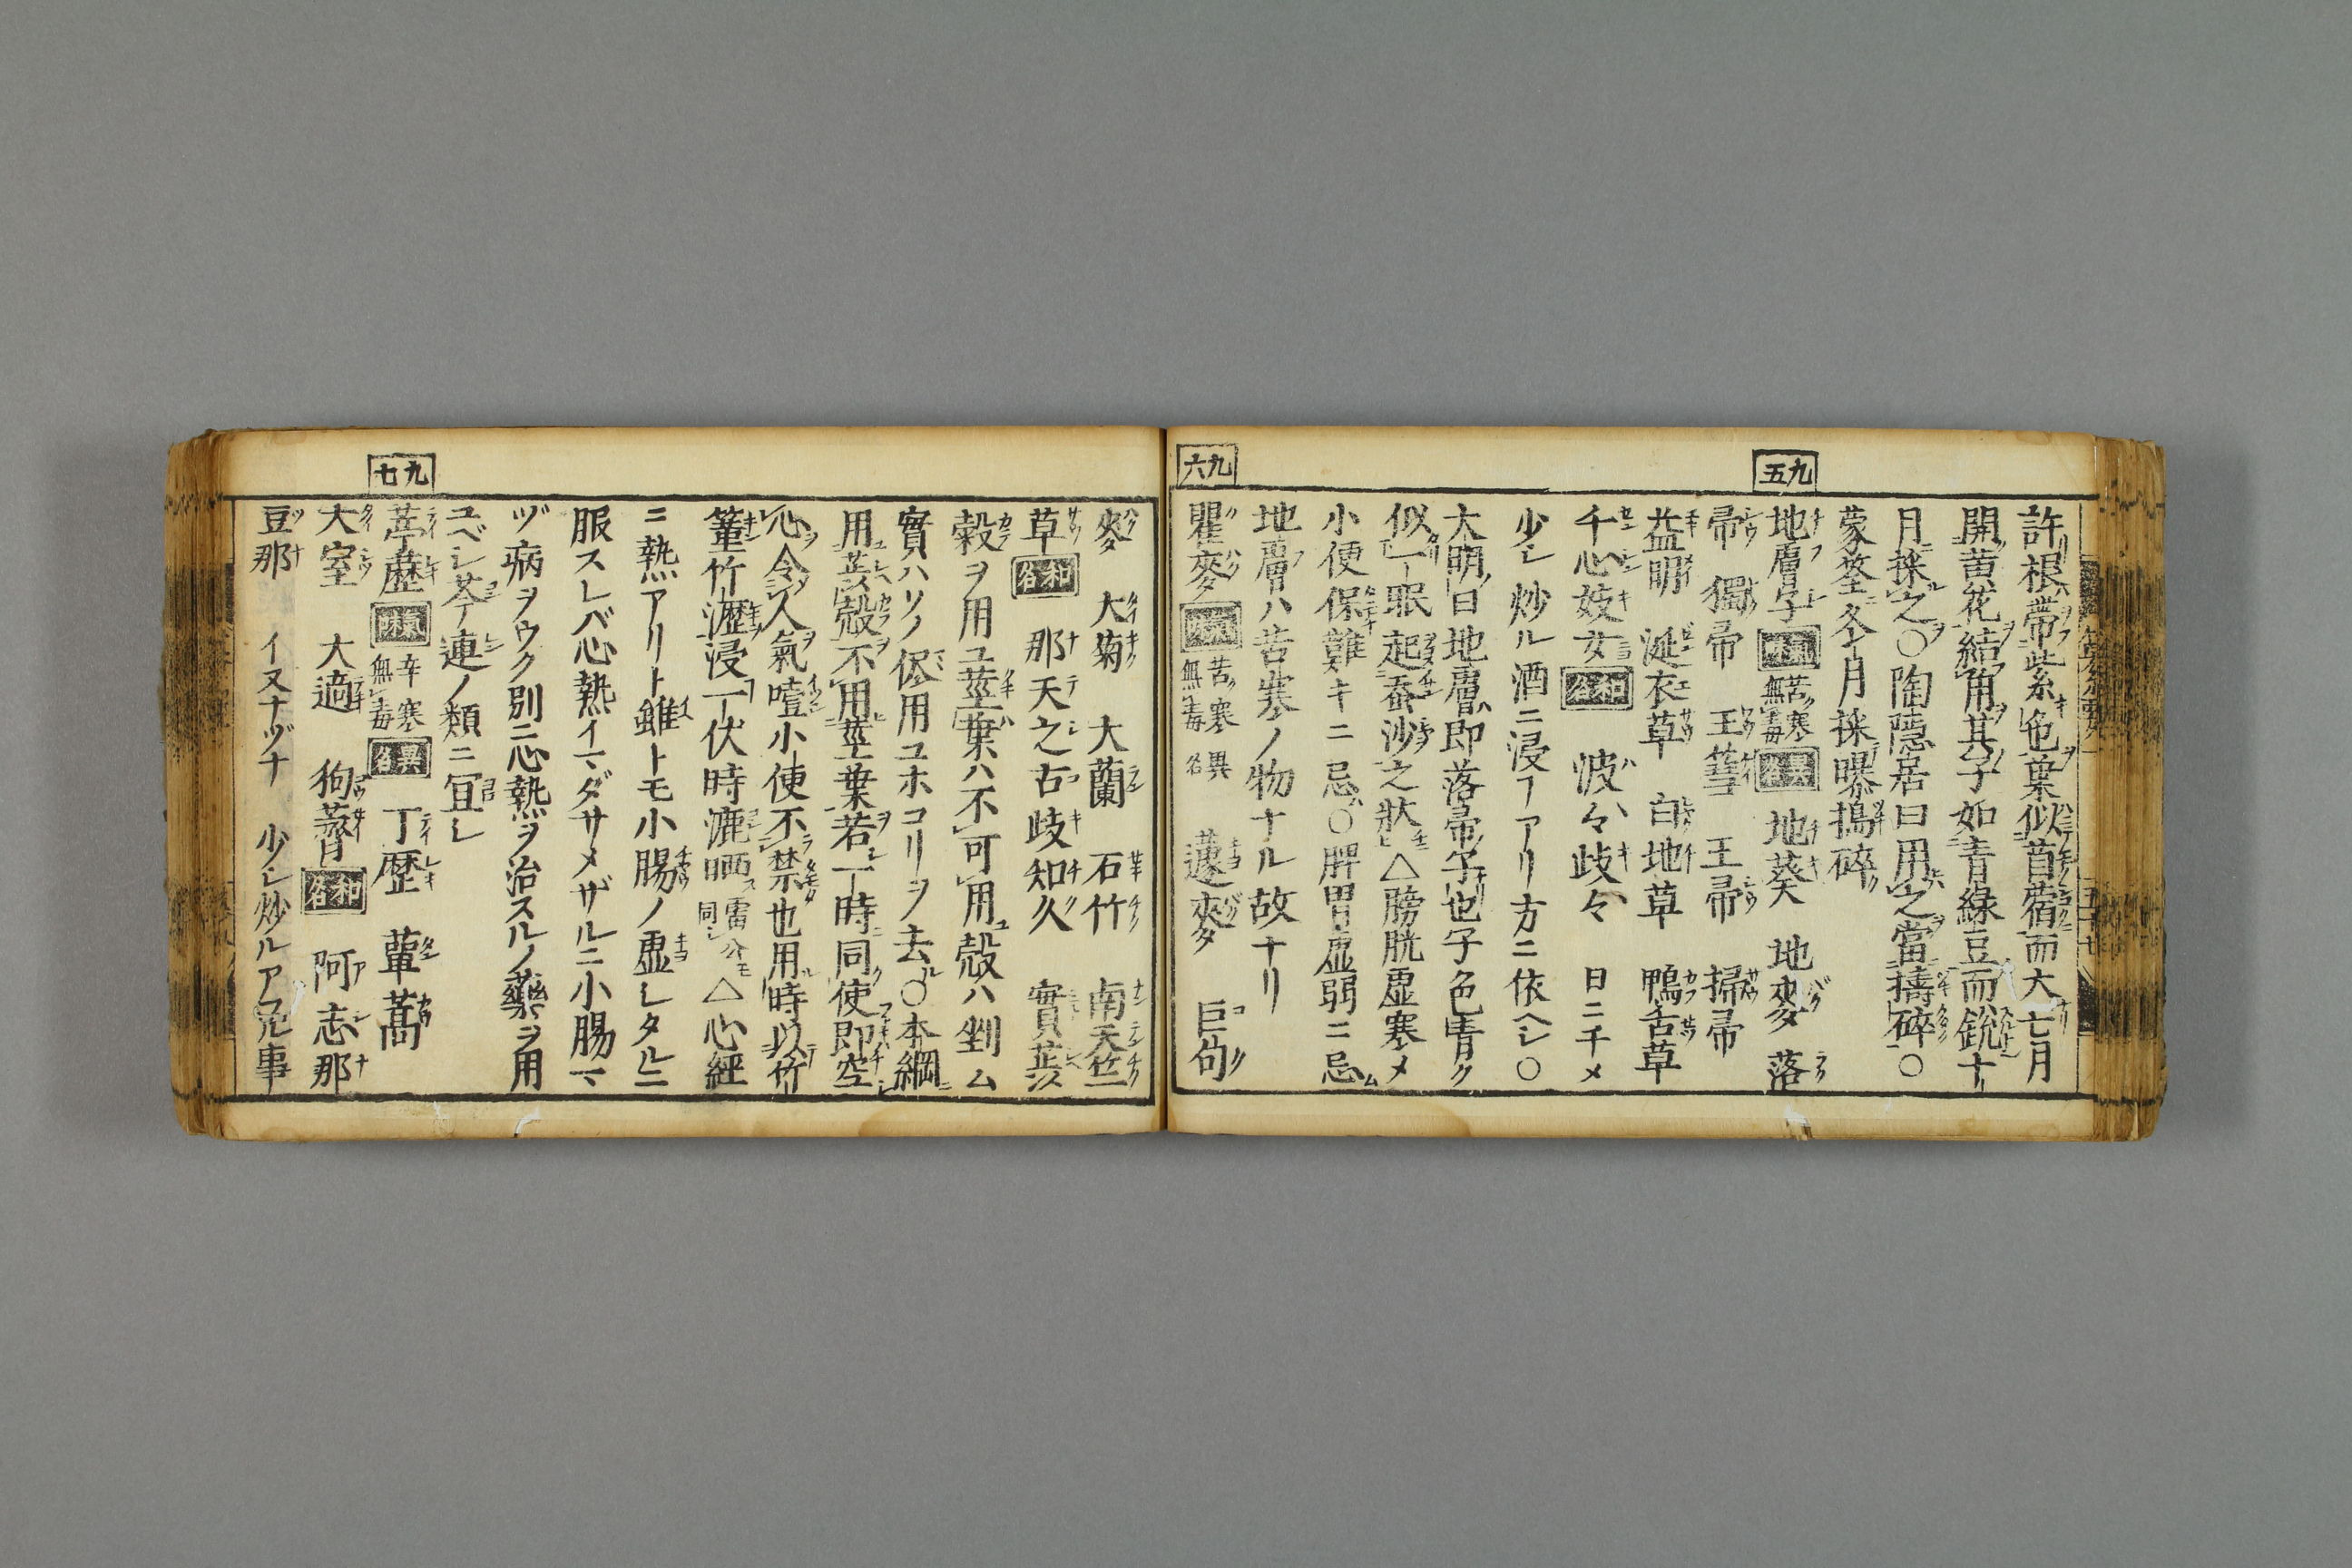 九五
九六
許根帶紫色葉似苜蓿而大七月
開黄花結角其子如青綠豆而銳十
月採之〇陶隱居曰用之當擣碎〇
蒙筌冬十月採曝搗碎
地膚子 氣味 苦寒無毒 異名 地葵 地麥 落
帚 獨帚 王篲 王帚 掃帚
益明 涎衣草 白地草 鴨舌草
千心妓女 和名 波々岐々 日ニ千メ
少シ炒ル酒ニ浸ヿアリ方ニ依ヘシ〇
大明曰地膚即落帚子也子色青ク
似一眠起蚕沙之狀△膀胱虛寒メ
小便保難キニ忌〇脾胃虚弱ニ忌ム
地膚ハ苦寒ノ物ナル故ナリ
瞿麥 氣味 苦寒無毒 異名 蘧麥 巨句
九七
麥 大菊 大蘭 石竹 南天竺
草 和名 那天之古 岐知久 實蕋
榖ヲ用ユ莖葉ハ不可用殼ハ剉ム
實ハソノ侭用ユホコリヲ去〇本綱ニ
用蕋殼不用莖葉若一時同使即空
心令人氣噎小便不禁也用時以竹
篁竹瀝浸一伏時漉晒ス雷公モ同シ△心經
ニ熱アリト雖トモ小腸ノ虛シタルニ
服スレバ心熱イマダサメザルニ小腸マ
ヅ病ヲウク別ニ心熱ヲ治スルノ藥ヲ用
ユベシ芩連ノ類ニ宜シ
葶藶 氣味 辛寒無毒 異名 丁歴 蕇蒿
大室 大適 狗薺 和名 阿志那
豆那 イ又ナヅナ 少シ炒ルアヿ凡事